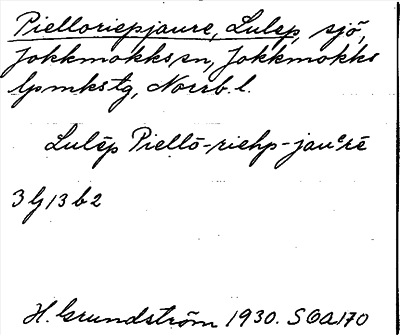 Pielloriepjaure, Lulep, sjö,
Jokkmokks sn, Jokkmokks
lpmkstg, Norrb. l.
Lulēp Piellō-riehp-jauᵉrē
3 G 13 b 2
H. Grundström 1930. SOA170